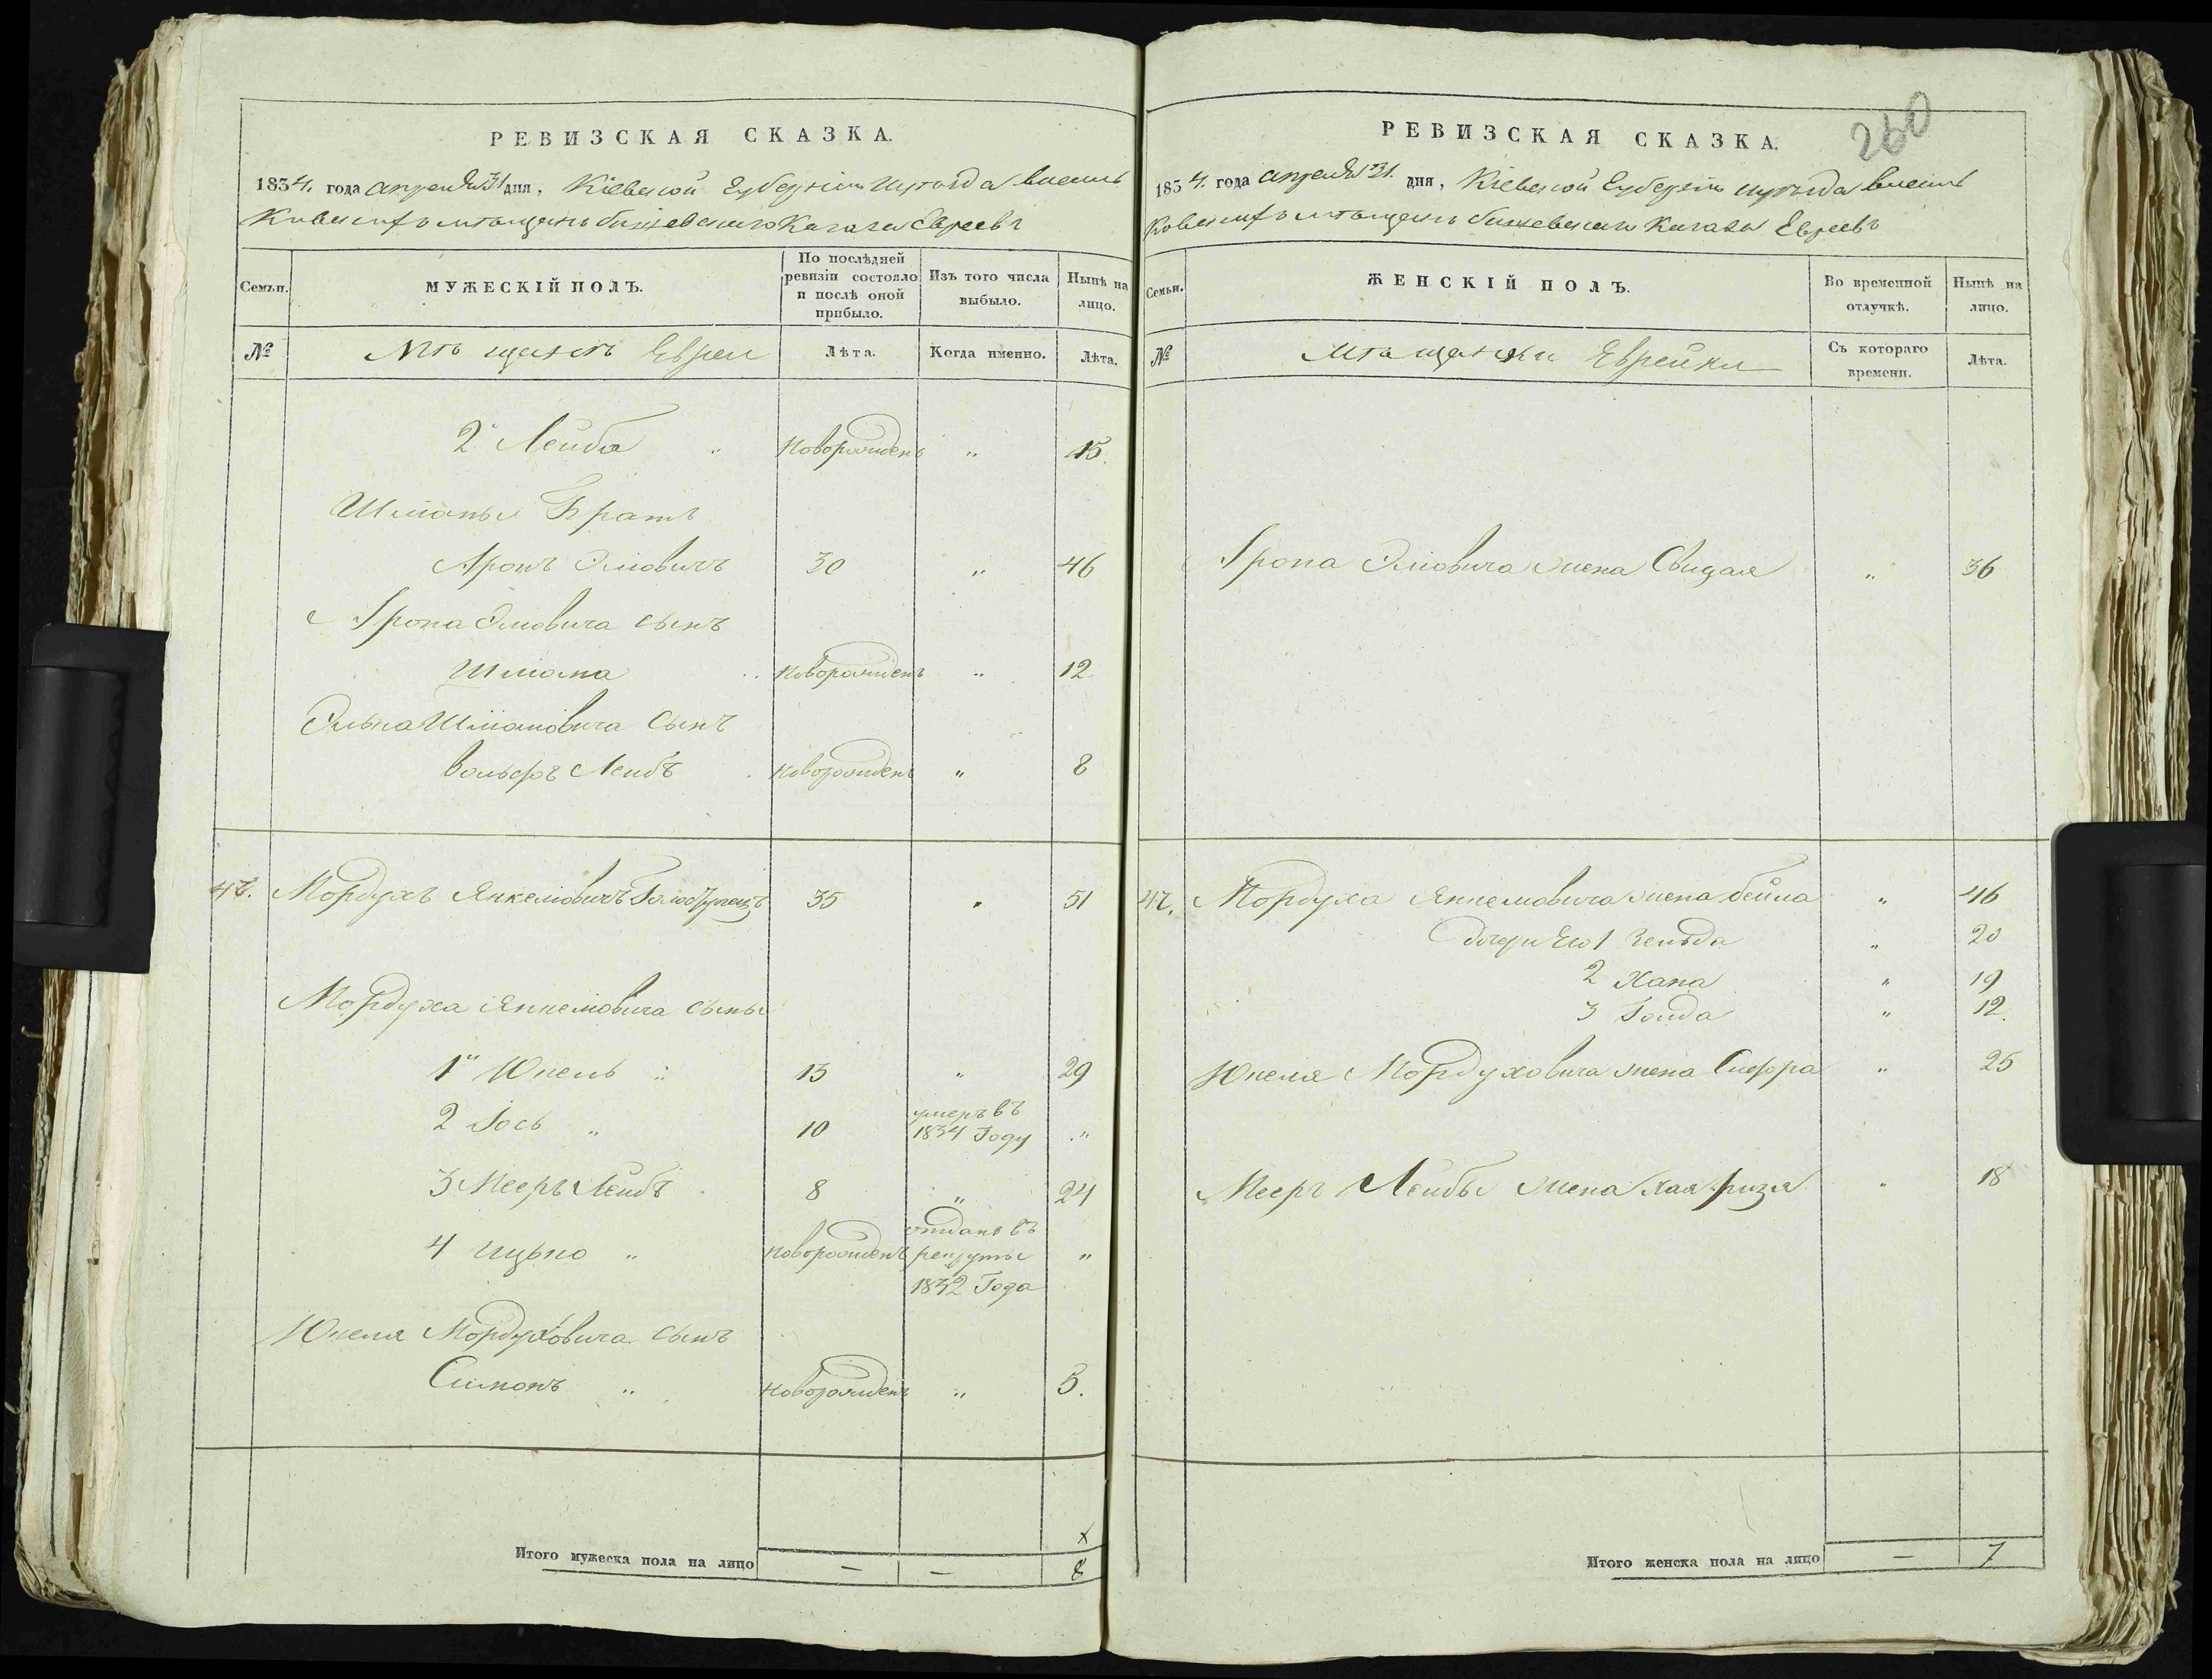 РЕВИЗСКАЯ СКАЗКА.
1834. года апреля 31 дня, Кіевской Губерніи и уѣзда
мѣщанъ Кагала Евреевъ
Семьи.
МУЖЕСКІЙ ПОЛЪ.
По послѣдней ревизіи состояло и послѣ оной прибыло.
Изъ того числа выбыло.
Нынѣ на лицо.
№
Мѣщанъ Евреи
Лѣта.
Когда именно.
Лѣта.
2 Лейба " новорожденъ " 15.
Шманы Братъ
Аронъ Элiовичъ 30 " 46
Арона Элiовича сынъ
Шмана " новорожденъ " 12
Шмановича Сынъ
Вольфъ Лейбъ новорожденъ " 8
47. Мордухъ Янкелiовичъ 35 " 51
Мордуха Янкелiовича сыны
1й Юкель " 13 " 29
2 Iось " 10 умеръ въ 1834 Году "
3 Мееръ Лейбъ 8 " 24
4 Ицько " новорожденъ отданъ въ рекруты 1832 Года "
Юкеля Мордуховича сынъ
Симонъ " новорожденъ " 5.
х
Итого мужеска пола на лицо — — 8
260
РЕВИЗСКАЯ СКАЗКА.
1834. года апреля 31. дня, Кіевской Губерніи и уѣзда
мѣщанъ Кагала Евреевъ
Семьи.
ЖЕНСКІЙ ПОЛЪ.
Во временной отлучкѣ.
Нынѣ на лицо.
№
Мѣщанки Еврейки
Съ котораго времени.
Лѣта.
Арона Элiовича жена " 36
47. Мордуха Янкелiовича жена Бейла " 46
дочери Его 1 Зельда " 20
2 Хана " 19
3 Гольда " 12.
Юкеля Мордуховича жена Сифра " 25
Мееръ Лейбы жена Хая Ризя " 18
Итого женска пола на лицо — 7